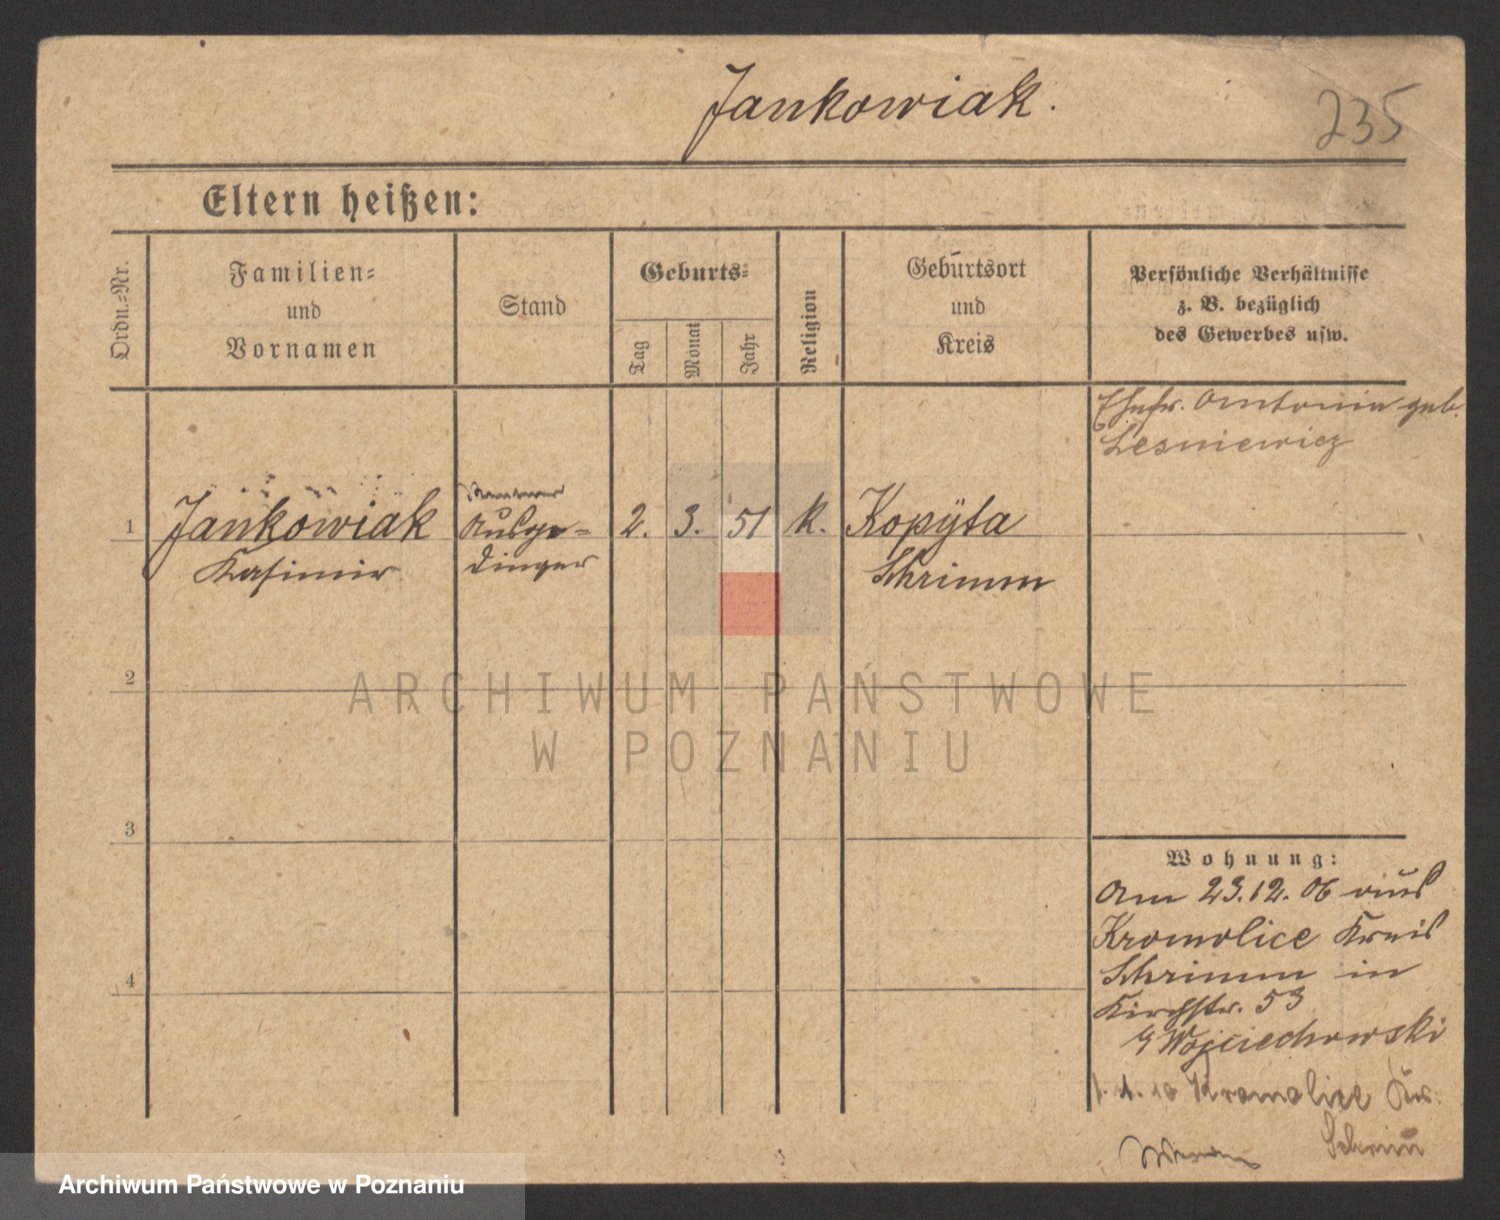 Jankowiak.
235
Eltern heißen:
Ordn.-Nr.
Familien-
und
Vornamen
Stand
Geburts-
Tag
Monat
Jahr
Religion
Geburtsort
und
Kreis
Persönliche Verhältnisse
z. B. bezüglich
des Gewerbes usw.
Ehefr. Antonia geb.
Lesniewicz
1
Jankowiak
Ausge-
2.
3.
51
k.
Kopyta
Kasimir
dinger
Schrimm
2
ARCHIWUM PAŃSTWOWE
W POZNANIU
3
4
Wohnung:
Am 23.12.06 aus
Kromolice Kreis
Schrimm in
Kirchstr. 53
Wojciechowski
Kromolice Kr.
Schrim
Archiwum Państwowe w Poznaniu